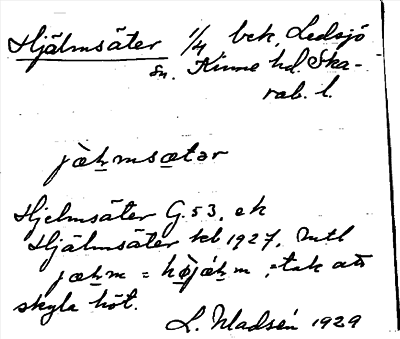 Hjälmsäter 1/4 bek, Ledsjö
sn. Kinne hd. Ska-
rab. l.
jæ̀hmsætər
Hjelmsäter G. 53. ek
Hjälmsäter kb 1927.
jæhm = tak att
skyla höt.
L. Madsén 1929